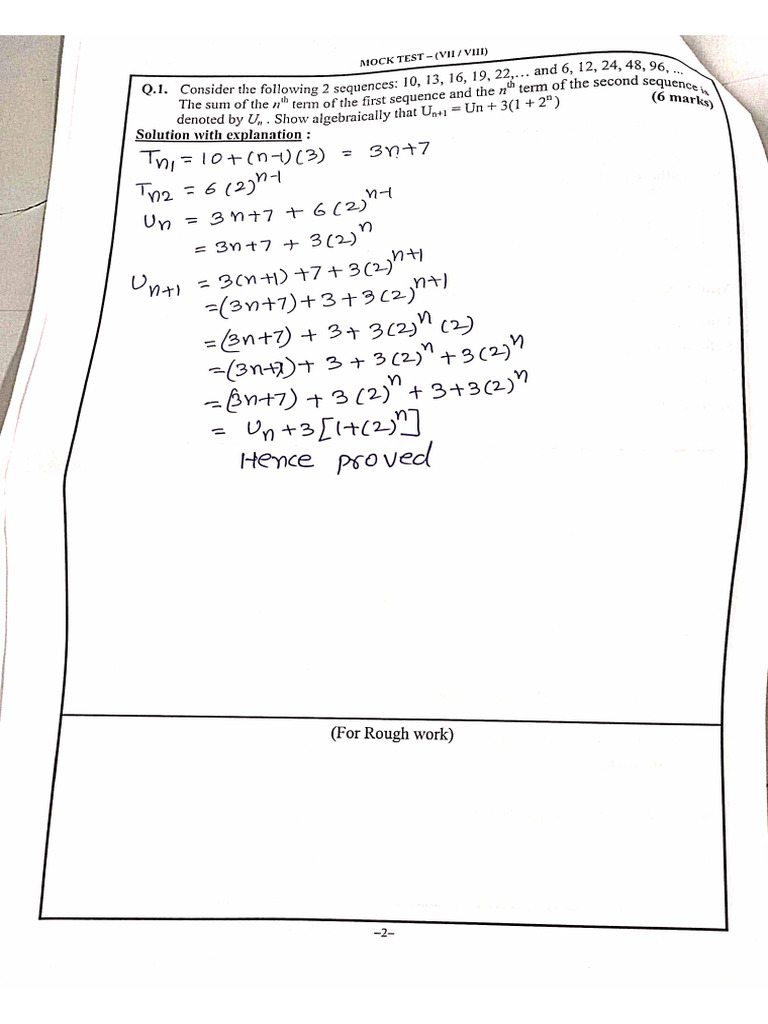 MOCK TEST – (VII / VIII)
Q.1. Consider the following 2 sequences: 10, 13, 16, 19, 22,… and 6, 12, 24, 48, 96, ...
The sum of the nᵗʰ term of the first sequence and the nᵗʰ term of the second sequence is
denoted by Uₙ . Show algebraically that Uₙ₊₁ = Un + 3(1 + 2ⁿ) (6 marks)
Solution with explanation :
Tn₁ = 10+(n-1)(3) = 3n+7
Tn2 = 6(2)ⁿ⁻¹
Uₙ = 3n+7 + 6(2)ⁿ⁻¹
= 3n+7 + 3(2)ⁿ
Uₙ₊₁ = 3(n+1)+7+3(2)ⁿ⁺¹
=(3n+7)+3+3(2)ⁿ⁺¹
=(3n+7)+3+3(2)ⁿ(2)
=(3n+7)+3+3(2)ⁿ+3(2)ⁿ
=(3n+7)+3(2)ⁿ+3+3(2)ⁿ
= Uₙ+3[1+(2)ⁿ]
Hence proved
(For Rough work)
–2–